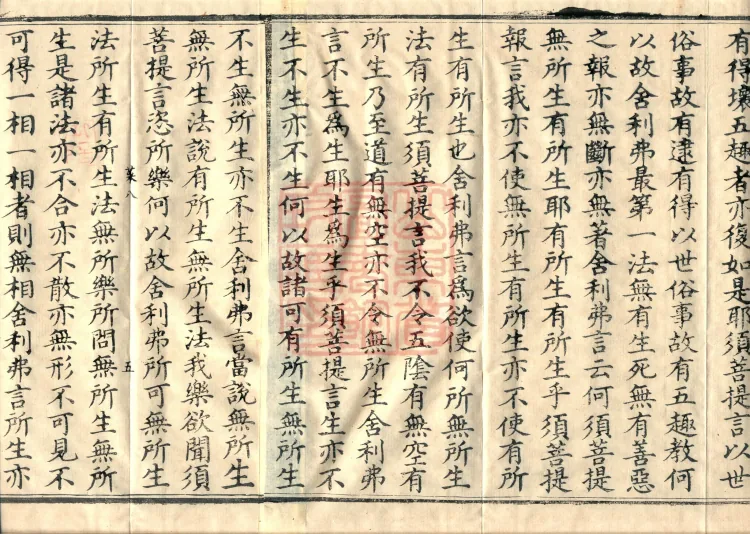 有得壞五趣者亦復如是耶須菩提言以世
俗事故有逮有得以世俗事故有五趣教何
以故舍利弗最第一法無有生死無有善惡
之報亦無斷亦無著舍利弗言云何須菩提
無所生有所生耶有所生有所生乎須菩提
報言我亦不使無所生有所生亦不使有所
生有所生也舍利弗言為欲使何所無所生
法有所生須菩提言我不令五陰有無空有
所生乃至道有無空亦不令無所生舍利弗
言不生為生耶生為生乎須菩提言生亦不
生不生亦不生何以故諸可有所生無所生
不生無所生亦不生舍利弗言當說無所生
無所生法說有所生無所生法我樂欲聞須
菩提言恣所樂何以故舍利弗所可無所生
菜八 五
法所生有所生法無所樂所問無所生無所
生是諸法亦不合亦不散亦無形不可見不
可得一相一相者則無相舍利弗言所生亦